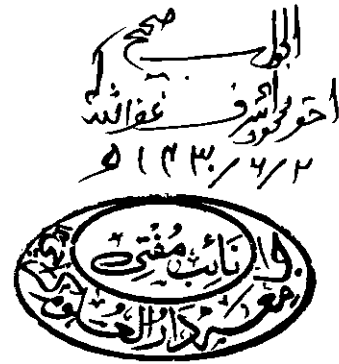 الجواب صحیح
احقر محمود اشرف غفراللہ لہ
۱۴۳۰/۶/۲ھ
نائب مفتی
جامعہ دارالعلوم کراچی